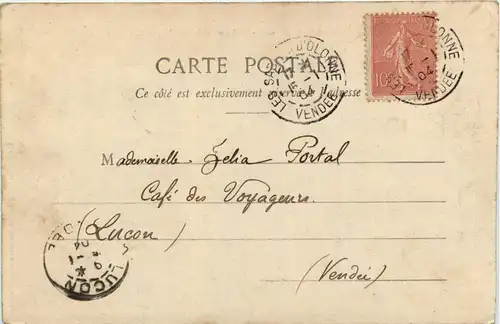 CARTE POSTALE
Ce côté est exclusivement réservé à l'adresse
LES SA D'OLONNE
VENDÉE
04
10
OLONNE
LES
04
VENDÉE
Mademoiselle Zelia Portal
Café des Voyageurs.
(Lucon)
(Vendée)
LUÇON
04